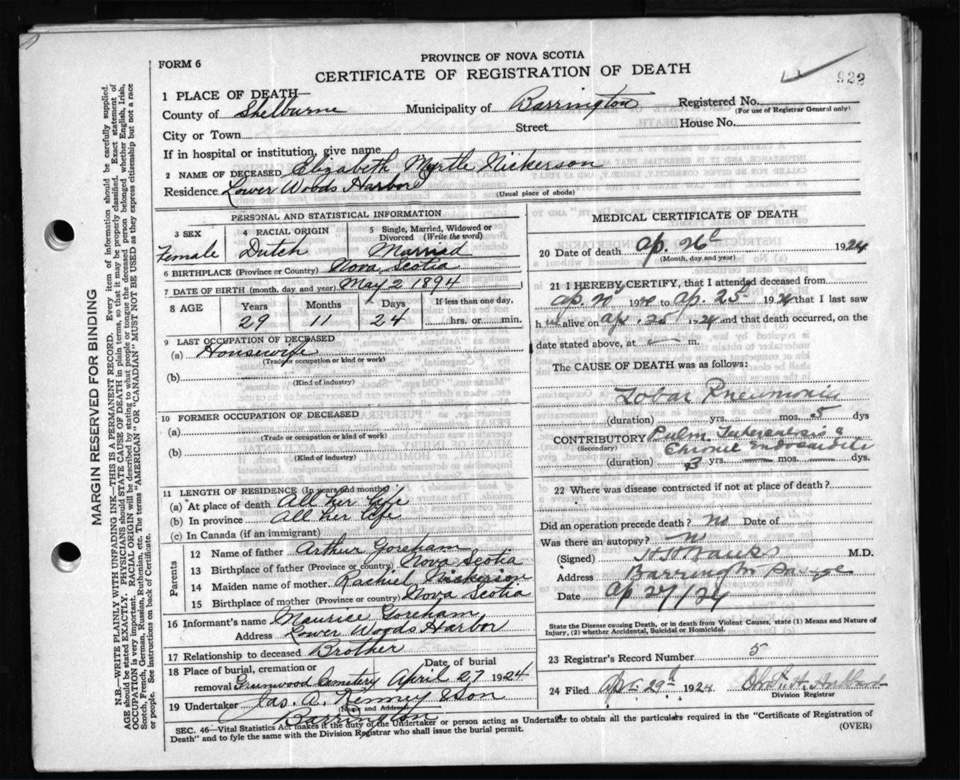 FORM 6
PROVINCE OF NOVA SCOTIA
CERTIFICATE OF REGISTRATION OF DEATH
922
1 PLACE OF DEATH—
County of Shelburne Municipality of Barrington Registered No.
(For use of Registrar General only)
City or Town Street House No.
If in hospital or institution, give name
2 NAME OF DECEASED Elizabeth Myrtle Nickerson
Residence Lower Woods Harbor
(Usual place of abode)
PERSONAL AND STATISTICAL INFORMATION
3 SEX 4 RACIAL ORIGIN 5 Single, Married, Widowed or Divorced (Write the word)
Female Dutch Married
6 BIRTHPLACE (Province or Country) Nova Scotia
7 DATE OF BIRTH (month, day, and year) May 2 1894
8 AGE Years Months Days If less than one day,
29 11 24 hrs. or min.
9 LAST OCCUPATION OF DECEASED
(a) Housewife
(Trade or occupation or kind or work)
(b)
(Kind of industry)
10 FORMER OCCUPATION OF DECEASED
(a)
(Trade or occupation or kind of work)
(b)
(Kind of industry)
11 LENGTH OF RESIDENCE (In years and months)
(a) At place of death All her Life
(b) In province All her Life
(c) In Canada (if an immigrant)
Parents
12 Name of father Arthur Goreham
13 Birthplace of father (Province or country) Nova Scotia
14 Maiden name of mother Rachiel Nickerson
15 Birthplace of mother (Province or country) Nova Scotia
16 Informant's name Maurice Goreham
Address Lower Woods Harbor
17 Relationship to deceased Brother
18 Place of burial, cremation or Date of burial
removal Greenwood Cemetery April 27 1924
19 Undertaker Jas. A. Kenney & Son
(Name and Address)
Barrington
MEDICAL CERTIFICATE OF DEATH
20 Date of death Ap. 26 1924
(Month, day and year)
21 I HEREBY CERTIFY, that I attended deceased from
Ap. 20 1924 to Ap. 25 1924 that I last saw
h alive on Ap. 25 1924 and that death occurred, on the
date stated above, at m.
The CAUSE OF DEATH was as follows:
Lobar Pneumonia
(duration) yrs. mos. 5 dys
CONTRIBUTORY Pulm. Tuberculosis &
(Secondary) Chronic Endocarditis
(duration) 3 yrs. mos. dys.
22 Where was disease contracted if not at place of death?
Did an operation precede death? No Date of
Was there an autopsy? N
(Signed) M.D.
Address Barrington Passage
Date Ap 27/24
State the Disease causing Death, or in death from Violent Causes, state (1) Means and Nature of
Injury, (2) whether Accidental, Suicidal or Homicidal.
23 Registrar's Record Number 5
24 Filed Apr. 29th 1924
Division Registrar
SEC. 46—Vital Statistics Act makes it the duty of the Undertaker or person acting as Undertaker to obtain all the particulars required in the "Certificate of Registration of
Death" and to fyle the same with the Division Registrar who shall issue the burial permit.
(OVER)
MARGIN RESERVED FOR BINDING
N.B.—WRITE PLAINLY WITH UNFADING INK—THIS IS A PERMANENT RECORD. Every item of information should be carefully supplied.
AGE should be stated EXACTLY. PHYSICIANS should STATE CAUSE OF DEATH in plain terms, so that it may be properly classified. Exact statement of
OCCUPATION is very important. RACIAL ORIGIN will be described by stating to what people or tongue the deceased person belonged whether English, Irish,
Scotch, French, German, Russian, Ruthenian, etc. The terms "AMERICAN" OR "CANADIAN" MUST NOT BE USED as they express citizenship but not a race
or people. See instructions on back of Certificate.